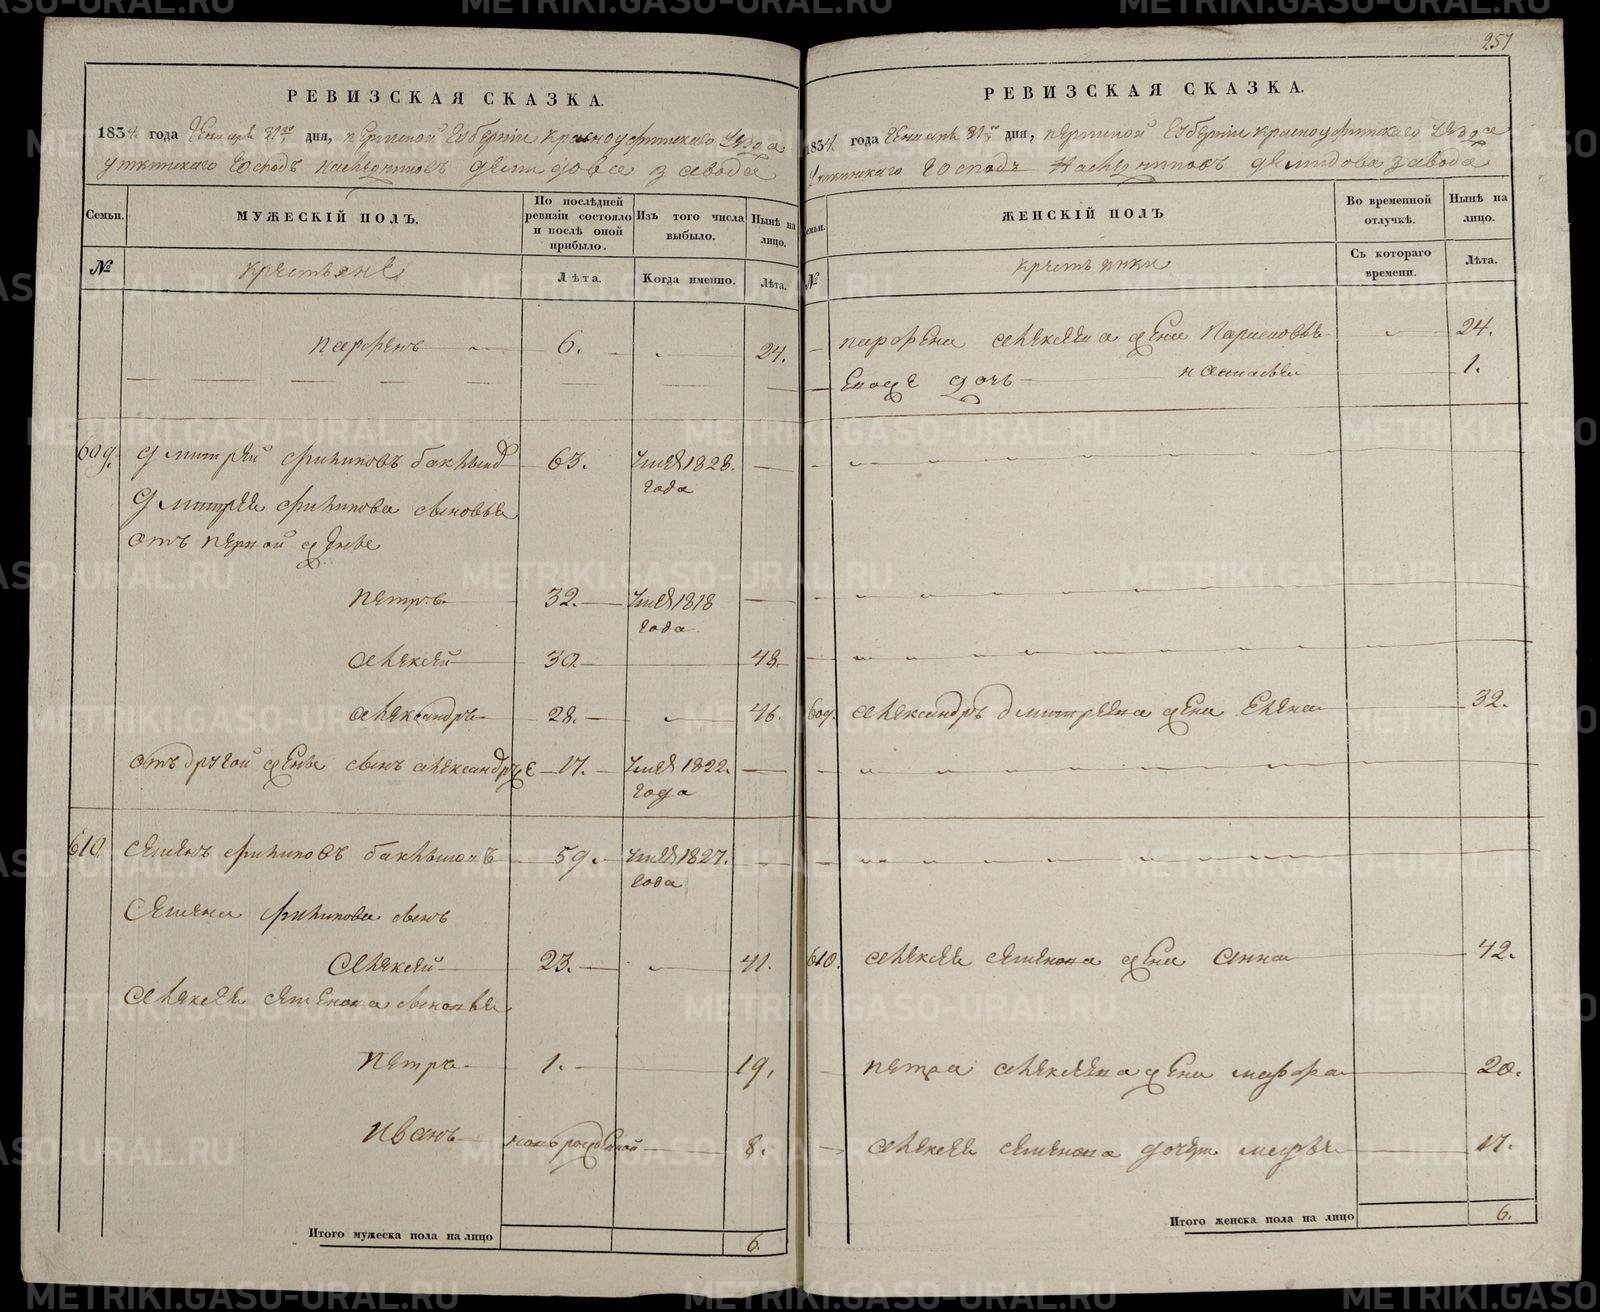 257
РЕВИЗСКАЯ СКАЗКА.
1834. года Генваря 31го дня, Пермской Губернiи Красноуфимского уезда
Уткинскаго Господъ Наследниковъ Демидова завода
Семьи. МУЖЕСКIЙ ПОЛЪ. По послѣдней ревизiи состояло и послѣ оной прибыло. Изъ того числа выбыло. Нынѣ на лицо.
№ крестьяне Лѣта. Когда именно. Лѣта.
Парфенъ 6. 24.
609. Дмитрей Филиповъ 63. Умре 1828. года
Дмитрея Филипова сыновья
отъ первой жены
Петръ 32. Умре 1818 года
Алексей 30 48.
Александръ 28. 46.
отъ другой жены сынъ Александръ же 17. Умре 1822. года
610. Семенъ Филиповъ 59. Умре 1827. года
Семена Филипова сынъ
Алексей 23. 41.
Алексея Семенова сыновья
Петръ 1. 19.
Иванъ новорожденой 8.
Итого мужеска пола на лицо 6.
РЕВИЗСКАЯ СКАЗКА.
1834. года Генваря 31го дня, Пермской Губернiи Красноуфимскаго уезда
Уткинскаго Господъ Наследниковъ Демидова завода
Семьи. ЖЕНСКIЙ ПОЛЪ Во временной отлучкѣ. Нынѣ на лицо.
№ крестьянки Съ котораго времени. Лѣта.
Парфена Алексеева жена 24.
Ево же дочь Наталья 1.
609. Александръ Дмитреева жена Елена 32.
610. Алексея Семенова жена Анна 42.
Петра Алексеева жена Мафра 20.
Алексея Семенова дочерь 17.
Итого женска пола на лицо 6.
METRIKI.GASO-URAL.RU